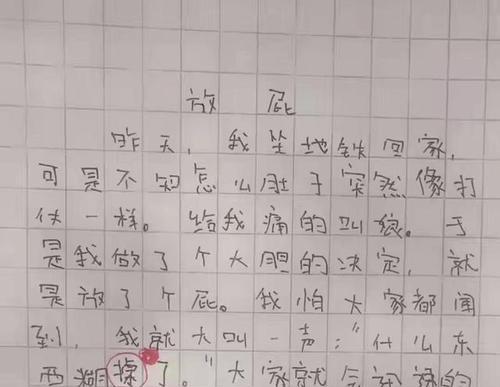 放屁
昨天，我坐地铁回家，
可是不知怎么肚子突然像打
仗一样。给我痛的叫娘。于
是我做了个大胆的决定，就
是放了个屁。我怕大家都闻
到，我就大叫一声：“什么东
西糊了。”大家就的